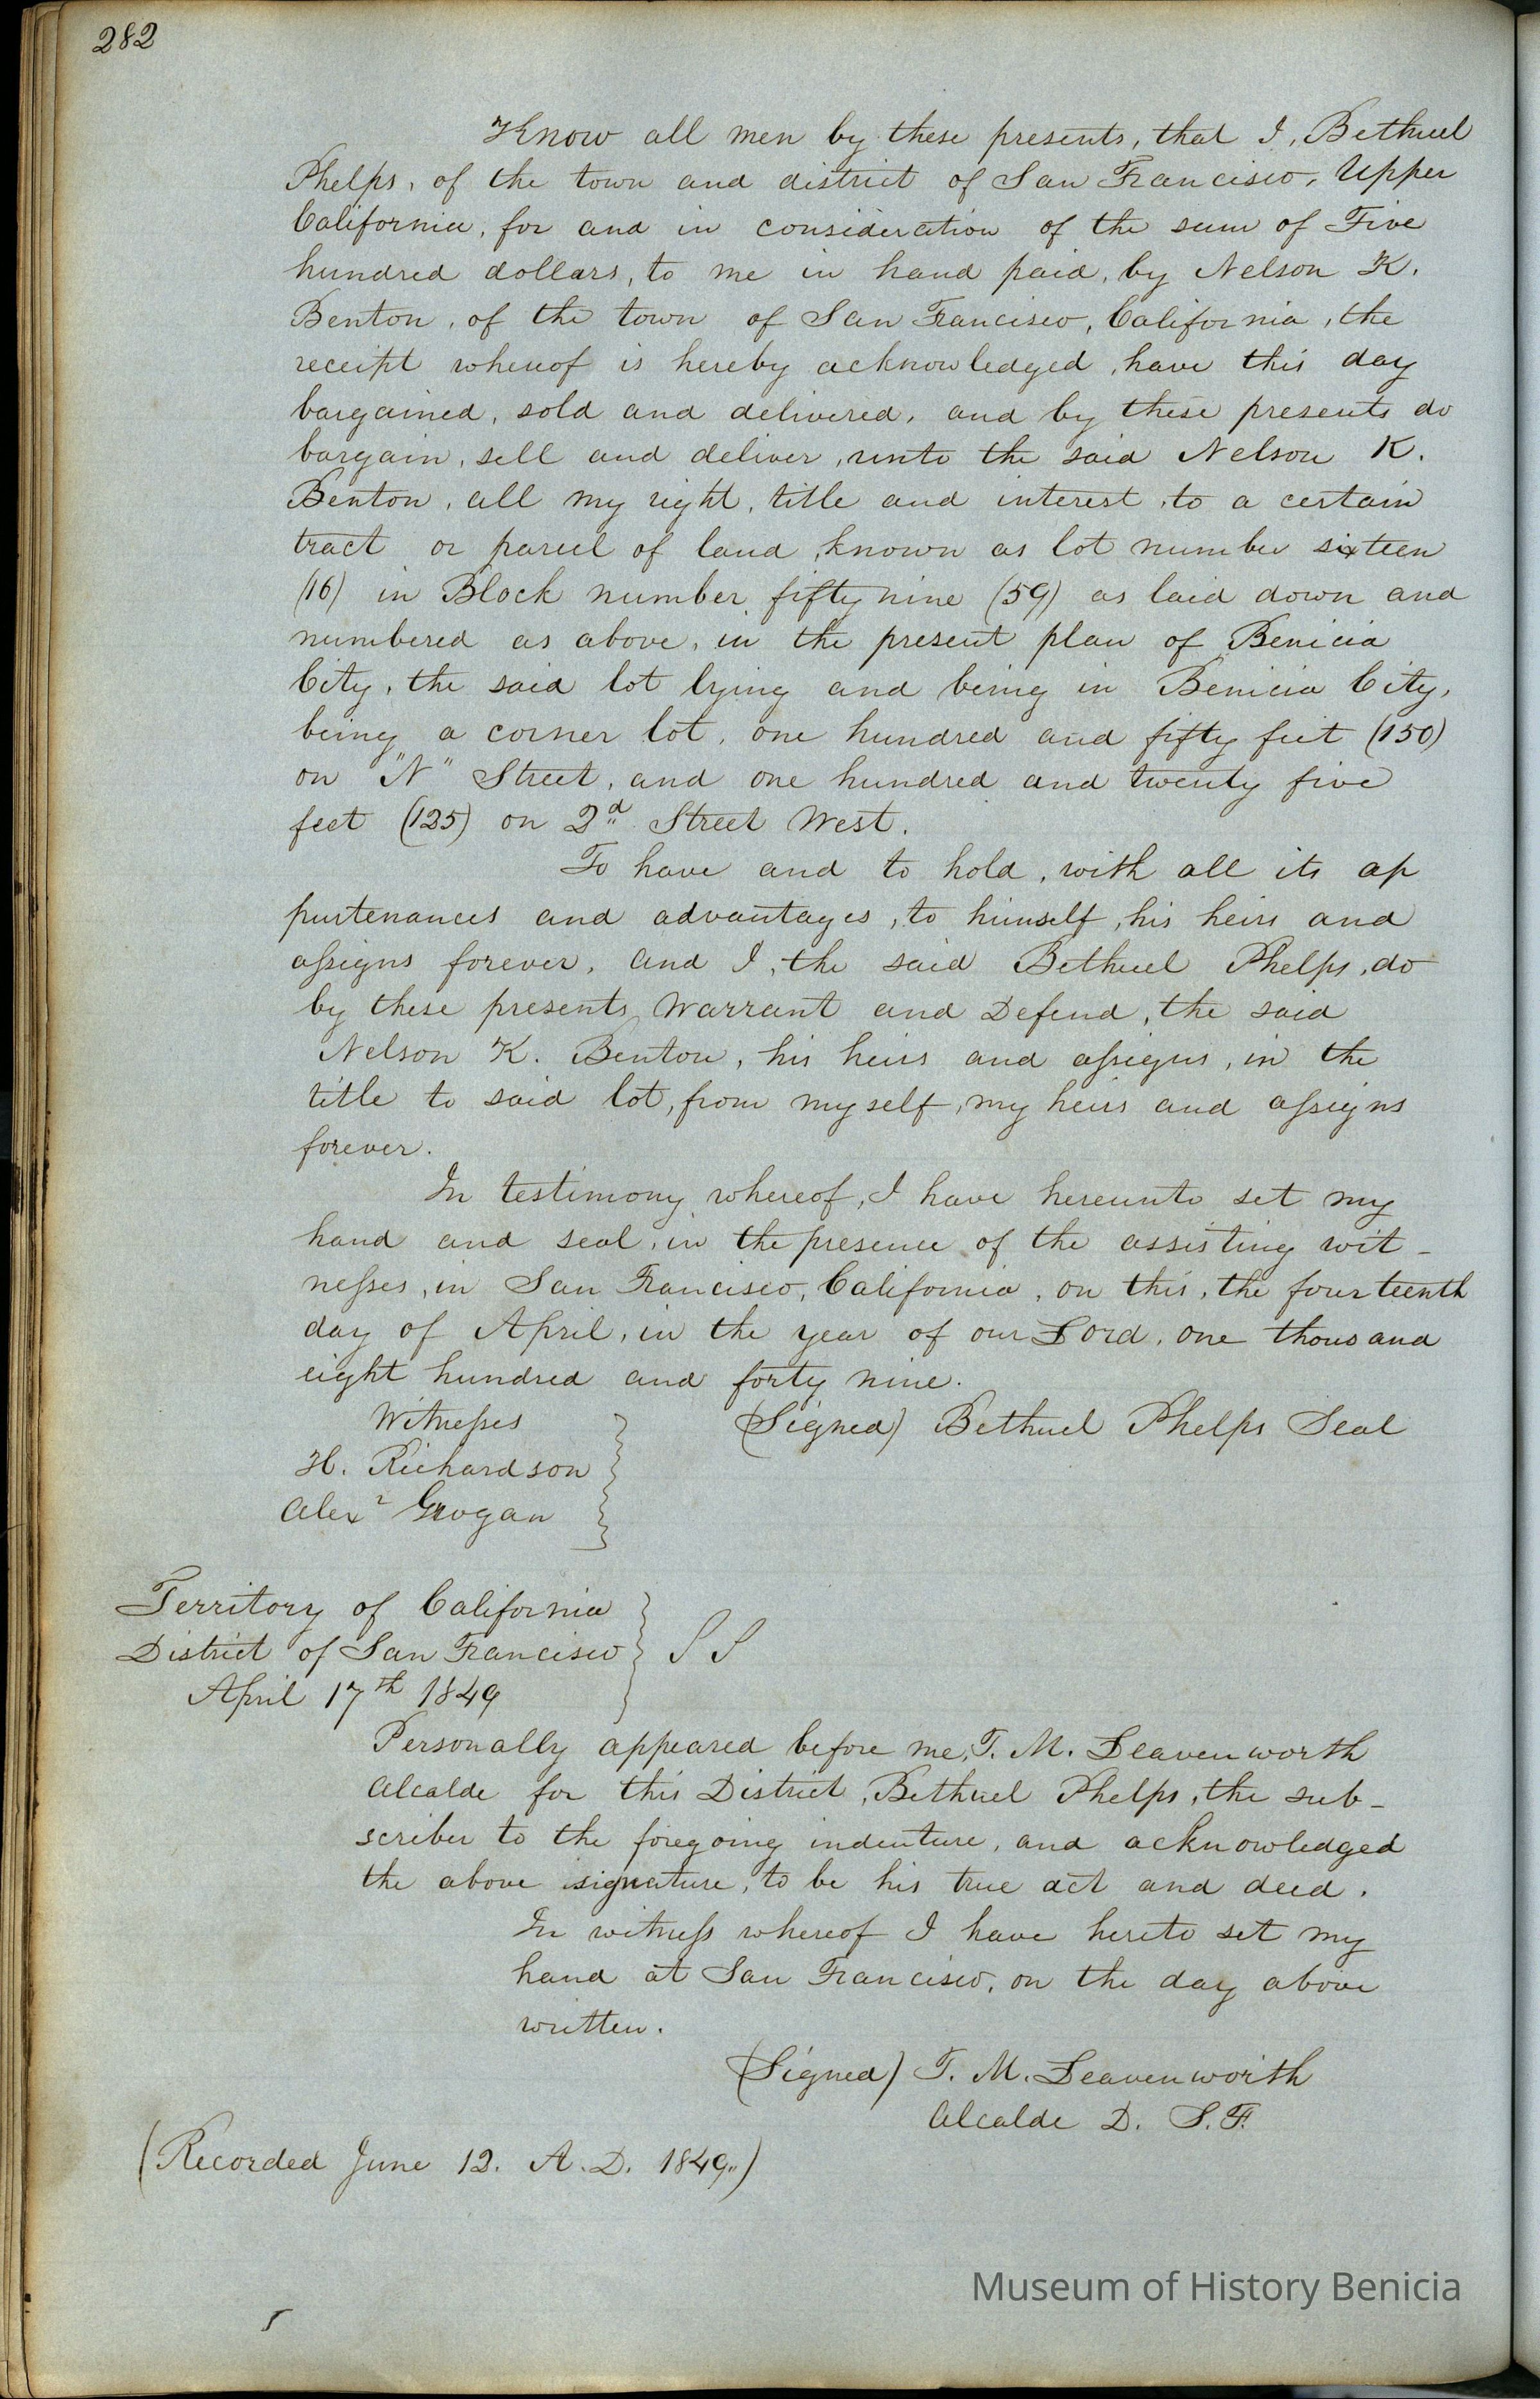 282
Know all men by these presents, that I, Bethuel
Phelps, of the town and district of San Francisco, Upper
California, for and in consideration of the sum of Five
hundred dollars, to me in hand paid, by Nelson K.
Benton, of the town of San Francisco, California, the
receipt whereof is hereby acknowledged, have this day
bargained, sold and delivered, and by these presents do
bargain, sell and deliver, unto the said Nelson K.
Benton, all my right, title and interest, to a certain
tract or parcel of land, known as lot number sixteen
(16) in Block number fifty nine (59) as laid down and
numbered as above, in the present plan of Benicia
City, the said lot lying and being in Benicia City,
being a corner lot, one hundred and fifty feet (150)
on "N" Street, and one hundred and twenty five
feet (125) on 2d Street West.
To have and to hold, with all its ap
purtenances and advantages, to himself, his heirs and
assigns forever, and I, the said Bethuel Phelps, do
by these presents Warrant and Defend, the said
Nelson K. Benton, his heirs and assigns, in the
title to said lot, from myself, my heirs and assigns
forever.
In testimony whereof, I have hereunto set my
hand and seal, in the presence of the assisting wit-
nesses, in San Francisco, California, on this, the fourteenth
day of April, in the year of our Lord, one thousand
eight hundred and forty nine.
Witnesses (Signed) Bethuel Phelps Seal
H. Richardson
Alexr Grogan
Territory of California
District of San Francisco } SS
April 17th 1849
Personally appeared before me, T. M. Leavenworth
Alcalde for this District, Bethuel Phelps, the sub-
scriber to the foregoing indenture, and acknowledged
the above signature, to be his true act and deed.
In witness whereof I have hereto set my
hand at San Francisco, on the day above
written.
(Signed) T. M. Leavenworth
Alcalde D. S. F.
(Recorded June 12. A. D. 1849.)
Museum of History Benicia